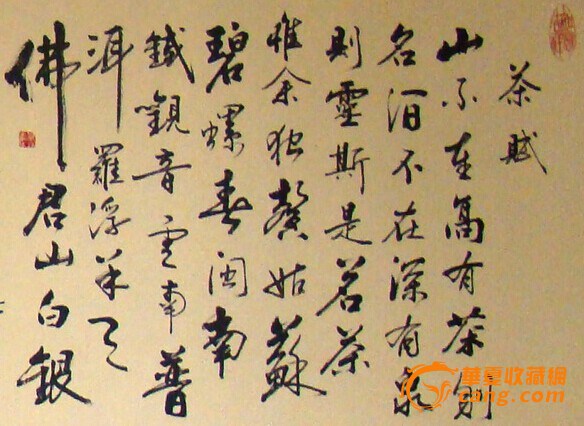 茶賦
山不在高有茶則
名泊不在深有泉
則靈斯是茗茶
惟余独馨姑蘇
碧螺春闽南
鐵觀音雲南普
洱羅浮天
佛君山白銀
華夏收藏網
cang.com